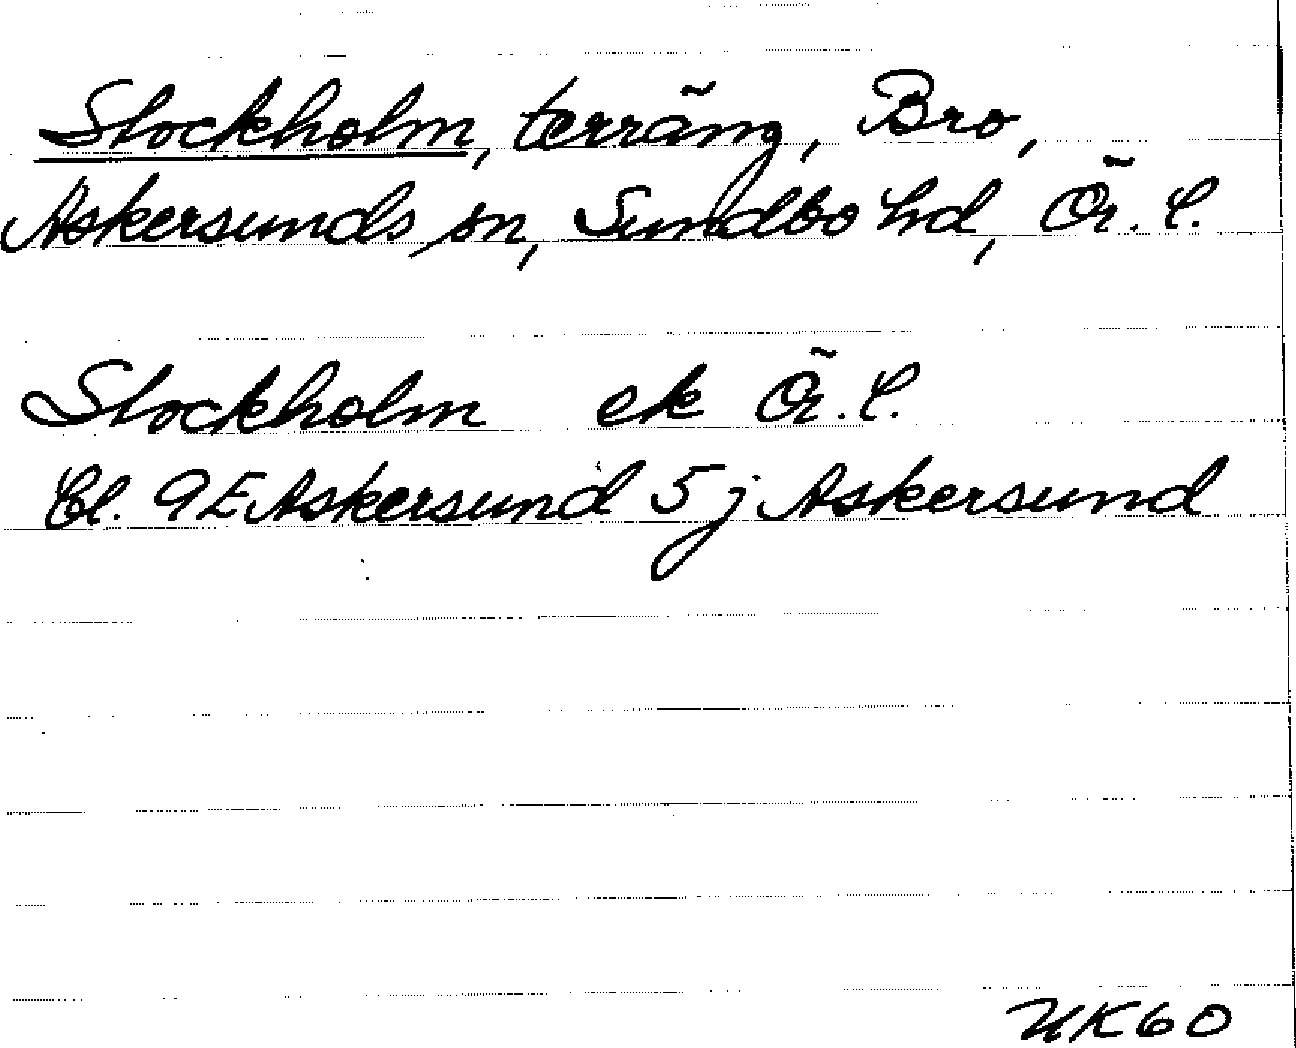 Stockholm, terräng, Bro,
Askersunds sn, Sundbo hd, Ör. l.
Stockholm ek Ör. l.
Bl. 9E Askersund 5 j Askersund
UK60